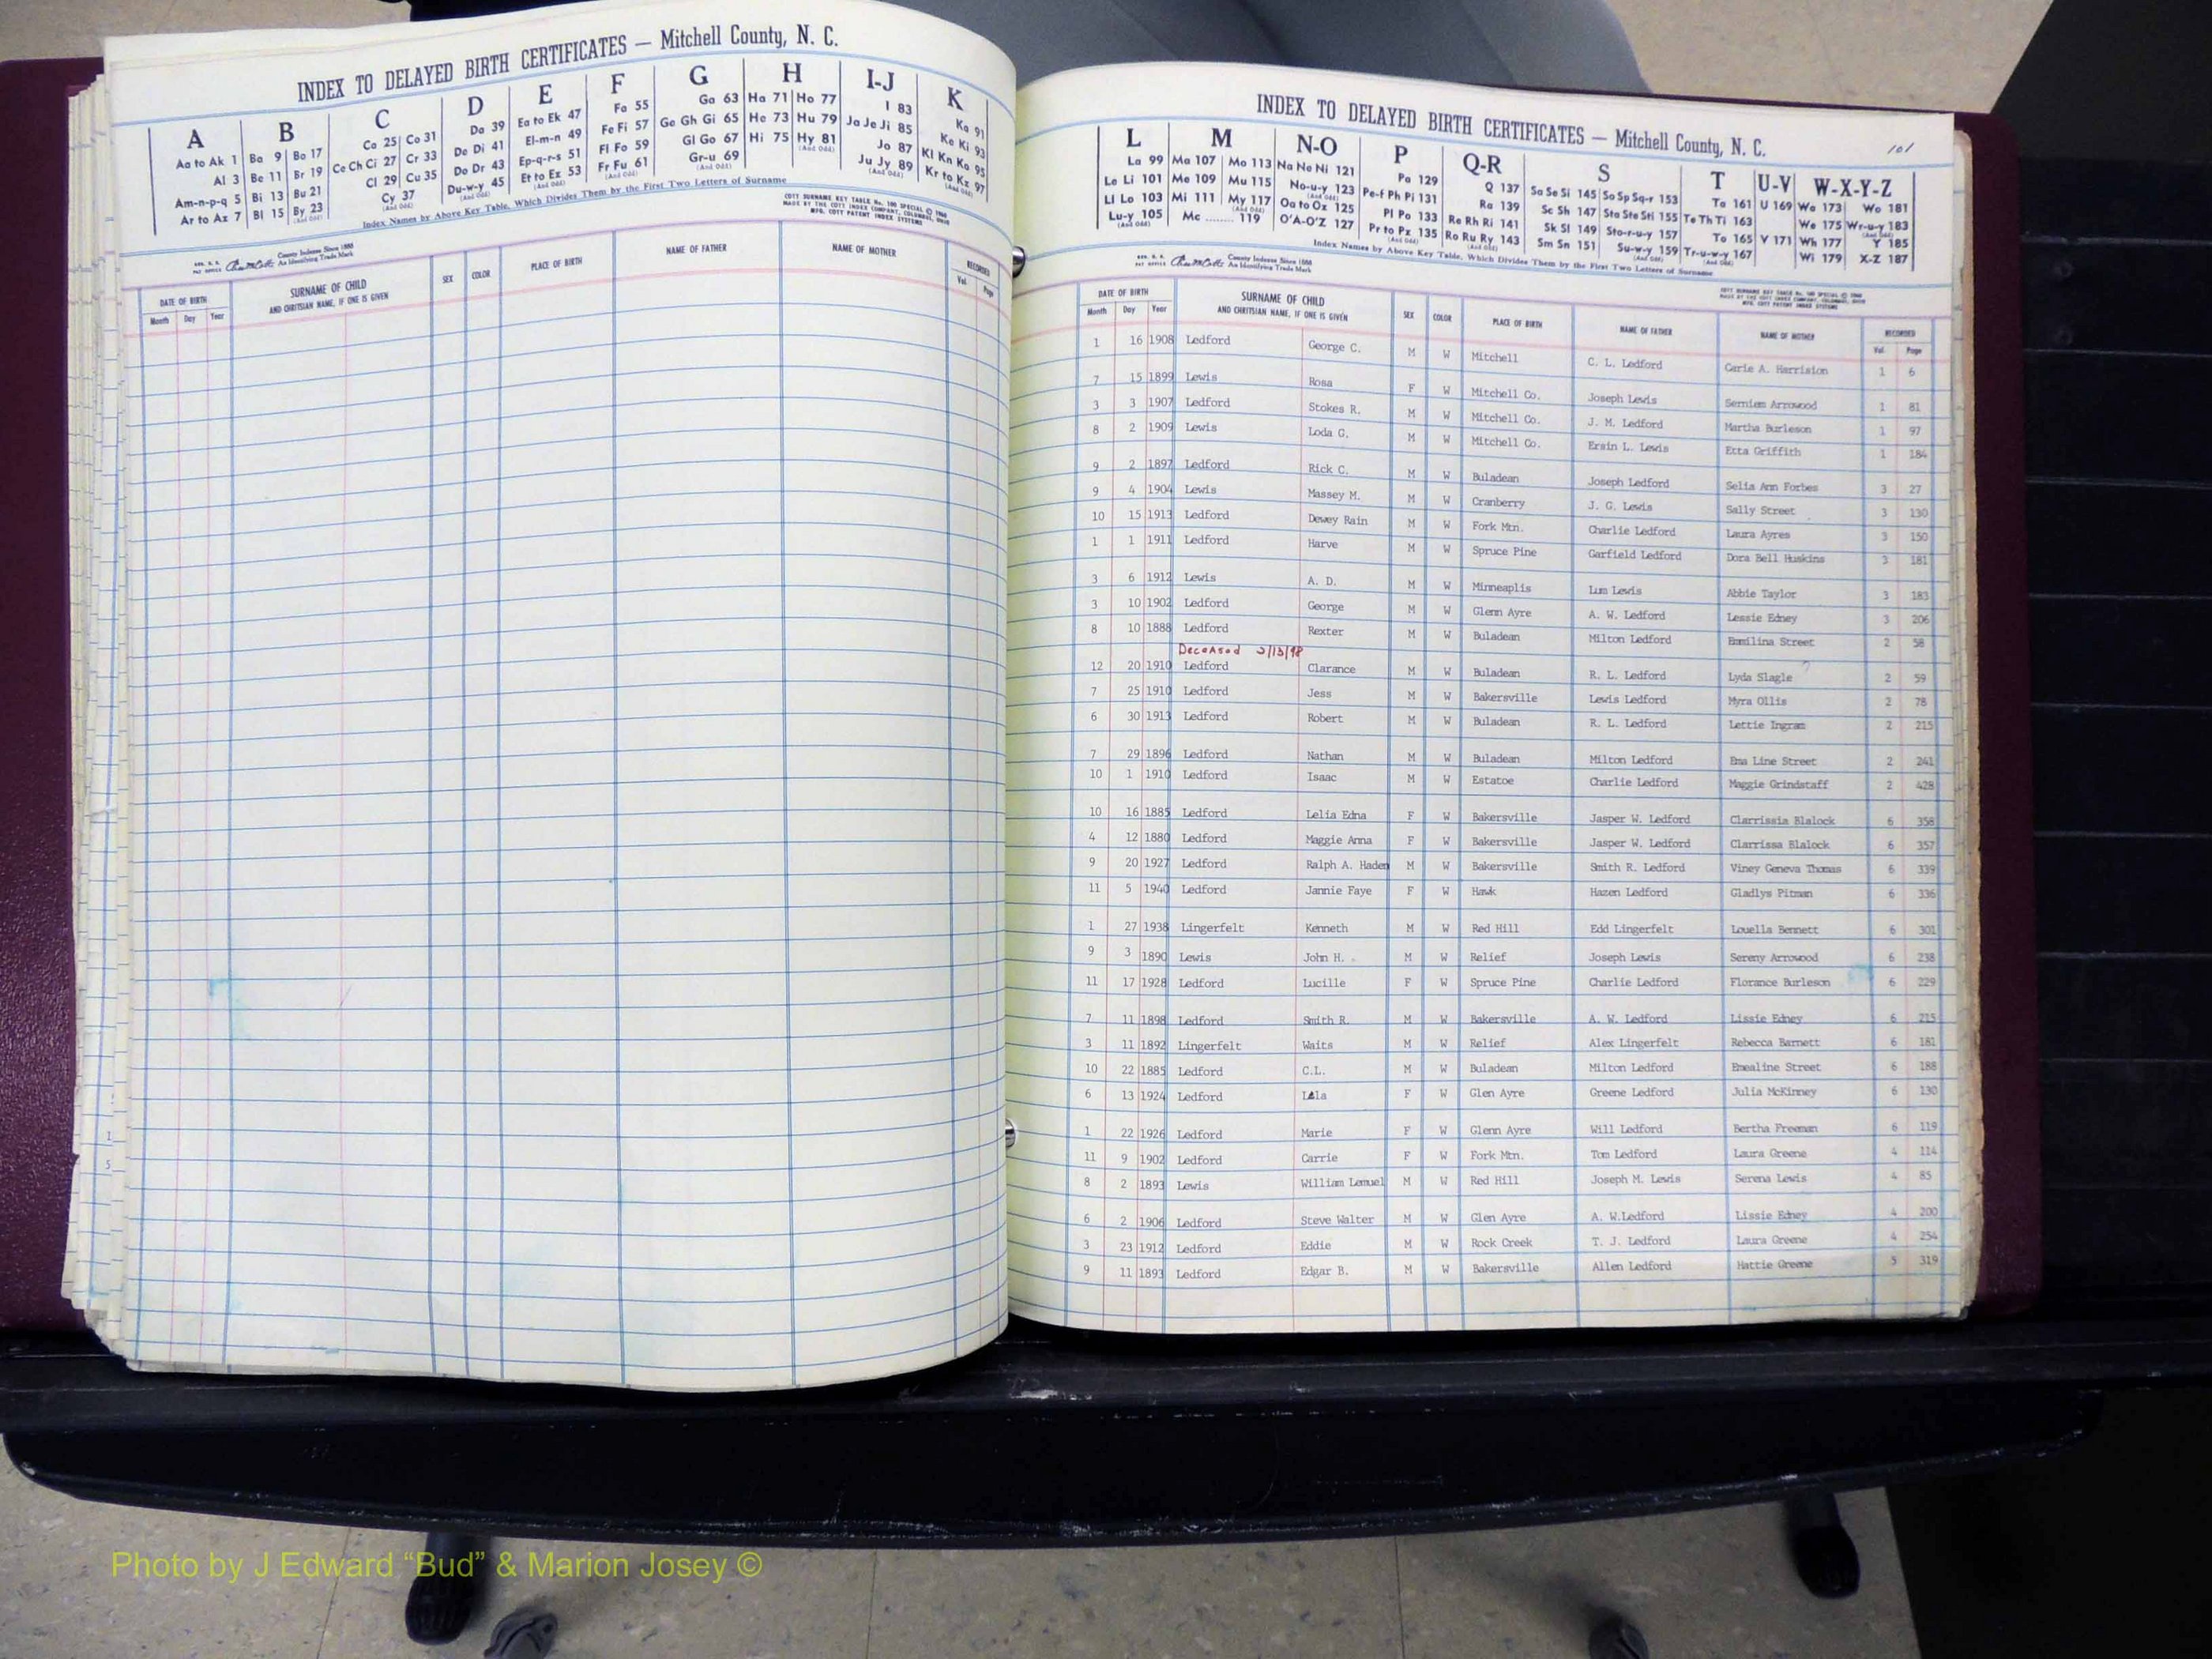 INDEX TO DELAYED BIRTH CERTIFICATES — Mitchell County, N. C.
A B C D E F G H I-J K
Aa to Ak 1 Ba 9 Bo 17 Ca 25 Co 31 Da 39 Ea to Ek 47 Fa 55 Ga 63 Ha 71 Ho 77 I 83 Ka 91
Al 3 Be 11 Br 19 Ce Ch Ci 27 Cr 33 De Di 41 El-m-n 49 Fe Fi 57 Ge Gh Gi 65 He 73 Hu 79 Ja Je Ji 85 Ke Ki 93
Am-n-p-q 5 Bi 13 Bu 21 Cl 29 Cu 35 Do Dr 43 Ep-q-r-s 51 Fl Fo 59 Gl Go 67 Hi 75 Hy 81 Jo 87 Kl Kn Ko 95
Ar to Az 7 Bl 15 By 23 Cy 37 Du-w-y 45 Et to Ez 53 Fr Fu 61 Gr-u 69 Ju Jy 89 Kr to Kz 97
(And Odd) (And Odd) (And Odd) (And Odd) (And Odd) (And Odd) (And Odd) (And Odd) (And Odd)
Index Names by Above Key Table, Which Divides Them by the First Two Letters of Surname
COTT SURNAME KEY TABLE No. 100 SPECIAL © 1960
MADE BY THE COTT INDEX COMPANY, COLUMBUS, OHIO
MFG. COTT PATENT INDEX SYSTEMS
County Indexes Since 1888
An Identifying Trade Mark
DATE OF BIRTH SURNAME OF CHILD SEX COLOR PLACE OF BIRTH NAME OF FATHER NAME OF MOTHER RECORDED
Month Day Year AND CHRITSIAN NAME, IF ONE IS GIVEN Vol. Page
INDEX TO DELAYED BIRTH CERTIFICATES — Mitchell County, N. C.
101
L M N-O P Q-R S T U-V W-X-Y-Z
La 99 Ma 107 Mo 113 Na Ne Ni 121 Pa 129 Q 137 Sa Se Si 145 So Sp Sq-r 153 Ta 161 U 169 Wa 173 Wo 181
Le Li 101 Me 109 Mu 115 No-u-y 123 Pe-f Ph Pi 131 Ra 139 Sc Sh 147 Sta Ste Sti 155 Te Th Ti 163 We 175 Wr-u-y 183
Ll Lo 103 Mi 111 My 117 Oa to Oz 125 Pl Po 133 Re Rh Ri 141 Sk Sl 149 Sto-r-u-y 157 To 165 V 171 Wh 177 Y 185
Lu-y 105 Mc ........ 119 O'A-O'Z 127 Pr to Pz 135 Ro Ru Ry 143 Sm Sn 151 Su-w-y 159 Tr-u-w-y 167 Wi 179 X-Z 187
(And Odd) (And Odd) (And Odd) (And Odd) (And Odd) (And Odd) (And Odd) (And Odd)
Index Names by Above Key Table, Which Divides Them by the First Two Letters of Surname
County Indexes Since 1888
An Identifying Trade Mark
COTT SURNAME KEY TABLE No. 100 SPECIAL © 1960
MADE BY THE COTT INDEX COMPANY, COLUMBUS, OHIO
MFG. COTT PATENT INDEX SYSTEMS
DATE OF BIRTH SURNAME OF CHILD SEX COLOR PLACE OF BIRTH NAME OF FATHER NAME OF MOTHER RECORDED
Month Day Year AND CHRITSIAN NAME, IF ONE IS GIVEN Vol. Page
1 16 1908 Ledford George C. M W Mitchell C. L. Ledford Carie A. Harrision 1 6
7 15 1899 Lewis Rosa F W Mitchell Co. Joseph Lewis Serniem Arrowood 1 81
3 3 1907 Ledford Stokes R. M W Mitchell Co. J. M. Ledford Martha Burleson 1 97
8 2 1909 Lewis Loda G. M W Mitchell Co. Ersin L. Lewis Etta Griffith 1 184
9 2 1897 Ledford Rick C. M W Buladean Joseph Ledford Selia Ann Forbes 3 27
9 4 1904 Lewis Massey M. M W Cranberry J. G. Lewis Sally Street 3 130
10 15 1913 Ledford Dewey Rain M W Fork Mtn. Charlie Ledford Laura Ayres 3 150
1 1 1911 Ledford Harve M W Spruce Pine Garfield Ledford Dora Bell Huskins 3 181
3 6 1912 Lewis A. D. M W Minneaplis Lum Lewis Abbie Taylor 3 183
3 10 1902 Ledford George M W Glenn Ayre A. W. Ledford Lessie Edney 3 206
8 10 1888 Ledford Rexter M W Buladean Milton Ledford Emmilina Street 2 58
Deceased 3/13/98
12 20 1910 Ledford Clarance M W Buladean R. L. Ledford Lyda Slagle 2 59
7 25 1910 Ledford Jess M W Bakersville Lewis Ledford Myra Ollis 2 78
6 30 1913 Ledford Robert M W Buladean R. L. Ledford Lettie Ingram 2 215
7 29 1896 Ledford Nathan M W Buladean Milton Ledford Ema Line Street 2 241
10 1 1910 Ledford Isaac M W Estatoe Charlie Ledford Maggie Grindstaff 2 428
10 16 1885 Ledford Lelia Edna F W Bakersville Jasper W. Ledford Clarrissia Blalock 6 358
4 12 1880 Ledford Maggie Anna F W Bakersville Jasper W. Ledford Clarrissa Blalock 6 357
9 20 1927 Ledford Ralph A. Haden M W Bakersville Smith R. Ledford Viney Geneva Thomas 6 339
11 5 1940 Ledford Jannie Faye F W Hawk Hazen Ledford Gladlys Pitman 6 336
1 27 1938 Lingerfelt Kenneth M W Red Hill Edd Lingerfelt Louella Bennett 6 301
9 3 1890 Lewis John H. M W Relief Joseph Lewis Sereny Arrowood 6 238
11 17 1928 Ledford Lucille F W Spruce Pine Charlie Ledford Florance Burleson 6 229
7 11 1898 Ledford Smith R. M W Bakersville A. W. Ledford Lissie Edney 6 215
3 11 1892 Lingerfelt Waits M W Relief Alex Lingerfelt Rebecca Barnett 6 181
10 22 1885 Ledford C.L. M W Buladean Milton Ledford Emealine Street 6 188
6 13 1924 Ledford Lila F W Glen Ayre Greene Ledford Julia McKinney 6 130
1 22 1926 Ledford Marie F W Glenn Ayre Will Ledford Bertha Freeman 6 119
11 9 1902 Ledford Carrie F W Fork Mtn. Tom Ledford Laura Greene 4 114
8 2 1893 Lewis William Lemuel M W Red Hill Joseph M. Lewis Serena Lewis 4 85
6 2 1906 Ledford Steve Walter M W Glen Ayre A. W.Ledford Lissie Edney 4 200
3 23 1912 Ledford Eddie M W Rock Creek T. J. Ledford Laura Greene 4 254
9 11 1893 Ledford Edgar B. M W Bakersville Allen Ledford Hattie Greene 5 319
1
5
Photo by J Edward “Bud” & Marion Josey ©